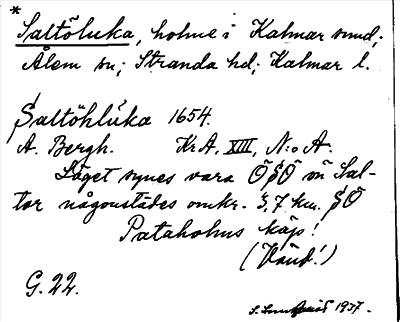 *
Saltöluka, holme i Kalmar sund;
Ålem sn; Stranda hd; Kalmar l.
Saltöhluka 1654.
A. Bergh. Kr A, XIII, N:o A.
Läget synes vara Ö S Ö om Sal-
tor någonstädes omkr. 3,7 km. S Ö
Pataholms köp!
(Vänd!)
G. 22.
1937.